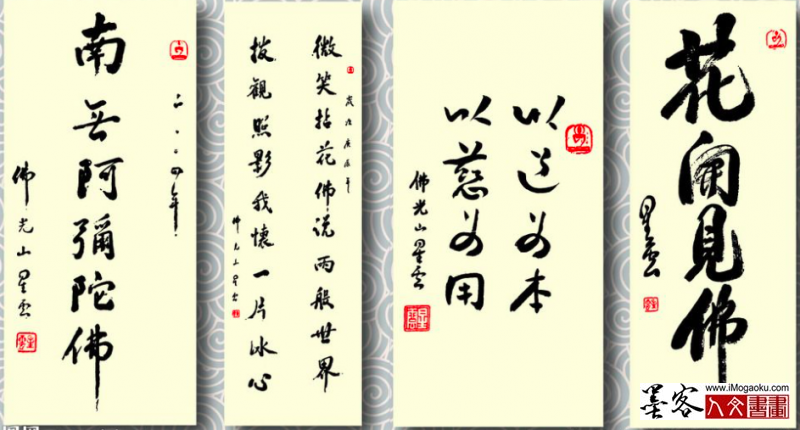 二〇〇四年
南无阿彌陀佛
佛光山星雲
微笑拈花佛说兩般世界
觀照影我懷一片冰心
佛光山星雲
以道为本
以慈为用
佛光山星雲
花開見佛
星雲
墨客
www.iMogaoku.com
人文書畫